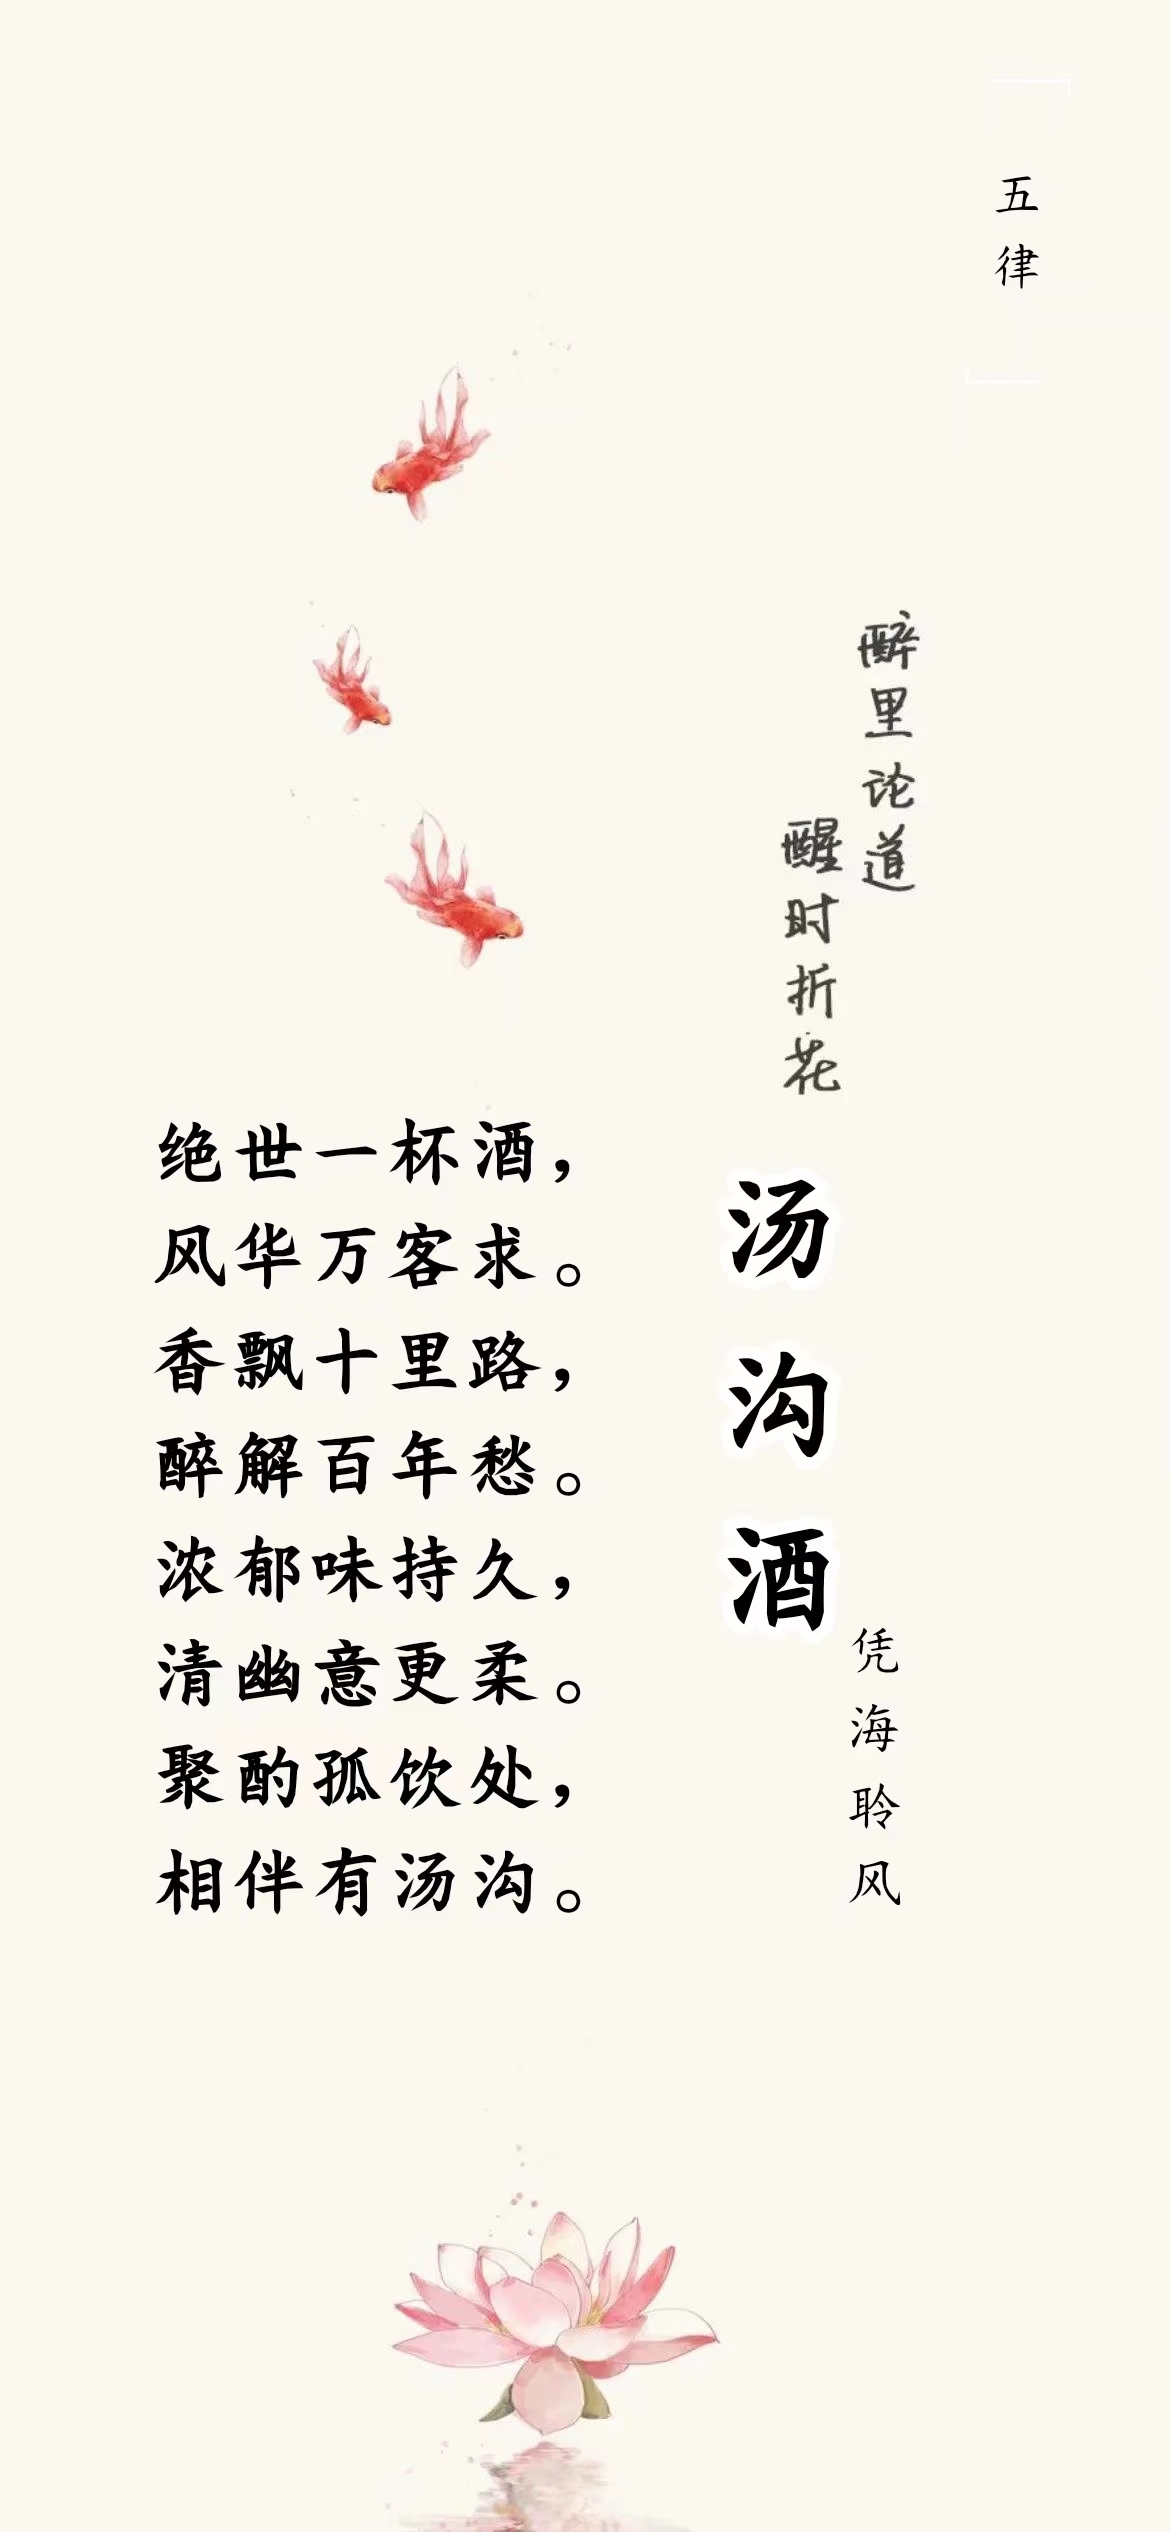 五律
醉里论道
醒时折花
汤沟酒
凭海聆风
绝世一杯酒，
风华万客求。
香飘十里路，
醉解百年愁。
浓郁味持久，
清幽意更柔。
聚酌孤饮处，
相伴有汤沟。